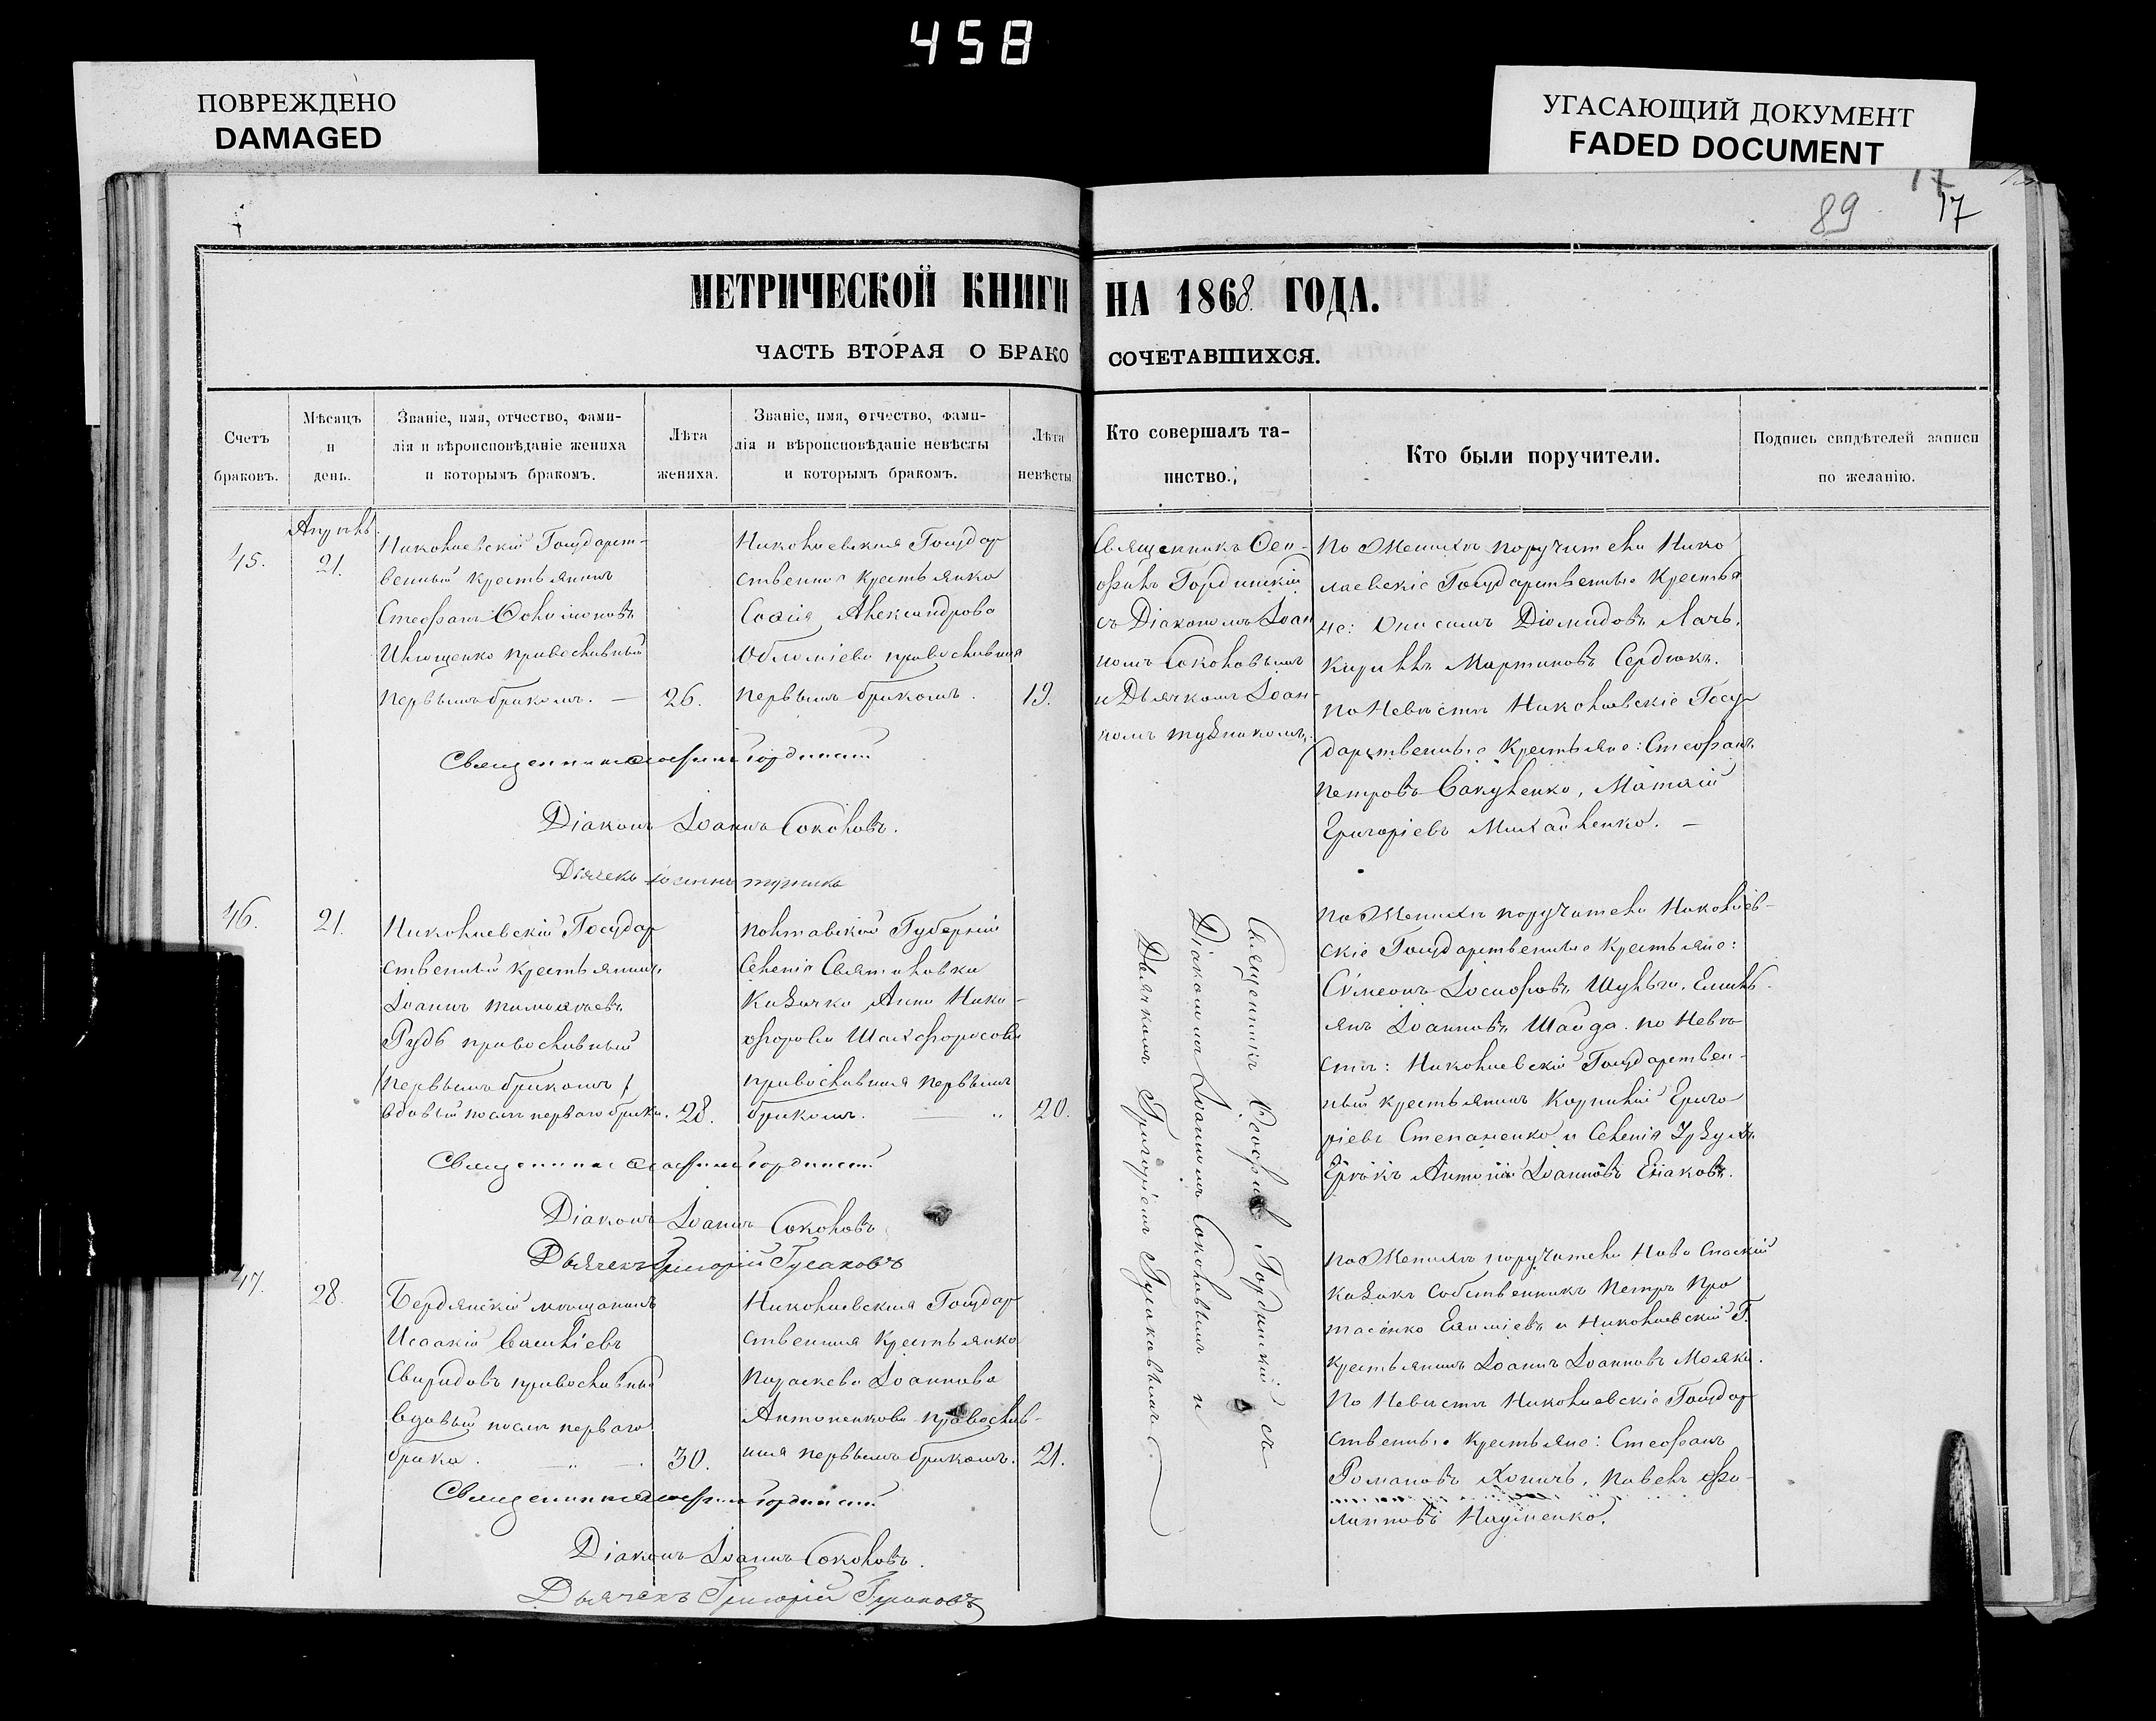 458
ПОВРЕЖДЕНО
DAMAGED
УГАСАЮЩИЙ ДОКУМЕНТ
FADED DOCUMENT
89
17
МЕТРИЧЕСКОЙ КНИГИ НА 1868 ГОДА.
ЧАСТЬ ВТОРАЯ О БРАКО СОЧЕТАВШИХСЯ.
Счетъ
браковъ.
Мѣсяцъ
и
день.
Званіе, имя, отчество, фами-
лія и вѣроисповѣданіе жениха
и которымъ бракомъ.
Лѣта
жениха.
Званіе, имя, отчество, фами-
лія и вѣроисповѣданіе невѣсты
и которымъ бракомъ.
Лѣта
невѣсты
Кто совершалъ та-
инство.
Кто были поручители.
Подпись свидѣтелей записи
по желанію.
45.
Апрѣль
21.
Николаевскій Государст-
венный крестьянинъ
Стефанъ
Ильященко православный
первымъ бракомъ. —
26.
Николаевская Государ
ственная крестьянка
Софія Александрова
православная
первымъ бракомъ.
19.
Священникъ Ѳео-
филъ Гординскій
съ Діакономъ Іоан
номъ Соколовымъ
и Дьячкомъ Іоан-
номъ
По Женихѣ поручители Нико
лаевскіе Государственные Крестья
не: Онисимъ Діомидовъ Лачъ,
Кириллъ Мартиновъ Сердюкъ.
по Невѣстѣ Николаевскіе Госу-
дарственные Крестьяне: Стефанъ
Петровъ Вакуленко, Матѳій
Григоріевъ Михайленко. —
Священникъ Ѳеофилъ Гординскій
Діаконъ Іоаннъ Соколовъ.
Дьячекъ Іоаннъ
46.
21.
Николаевскій Государ
ственный крестьянинъ
Іоаннъ Тимоѳеевъ
Рудь православный
/первымъ бракомъ/
вдовый послѣ перваго брака.
28.
Полтавской Губерніи
Селенія Святиловки
Козачка Анна Ники-
форова
православная первымъ
бракомъ.
20.
Священникъ Ѳеофилъ Гординскій съ
Діакономъ Іоанномъ Соколовымъ и
Дьячкомъ Григоріемъ Гусаковымъ.
по Женихѣ поручители Николаев-
скіе Государственные крестьяне:
Симеонъ Іосифовъ Шульга, Емиль-
янъ Іоанновъ Шайда. по Невѣ
стѣ: Николаевскій Государствен-
ный крестьянинъ Корнилій Григо
ріевъ Степаненко и Селенія
Антоній Іоанновъ
Священникъ Ѳеофилъ Гординскій
Діаконъ Іоаннъ Соколовъ
Дьячекъ Григорій Гусаковъ
47.
28.
Бердянскій мѣщанинъ
Исаакій Василіевъ
Свиридовъ православный
вдовый послѣ перваго
брака.
30.
Николаевская Государ
ственная крестьянка
Параскева Іоаннова
Антоненкова православ-
ная первымъ бракомъ.
21.
по Женихѣ поручители Ново Спаскій
козакъ Собственникъ Петръ Про
тасенко Евѳиміевъ и Николаевскій Г.
крестьянинъ Іоаннъ Іоанновъ
По Невѣстѣ Николаевскіе Государ
ственные крестьяне: Стефанъ
Романовъ Павелъ Фи-
липповъ Науменко.
Священникъ Ѳеофилъ Гординскій
Діаконъ Іоаннъ Соколовъ.
Дьячекъ Григорій Гусаковъ